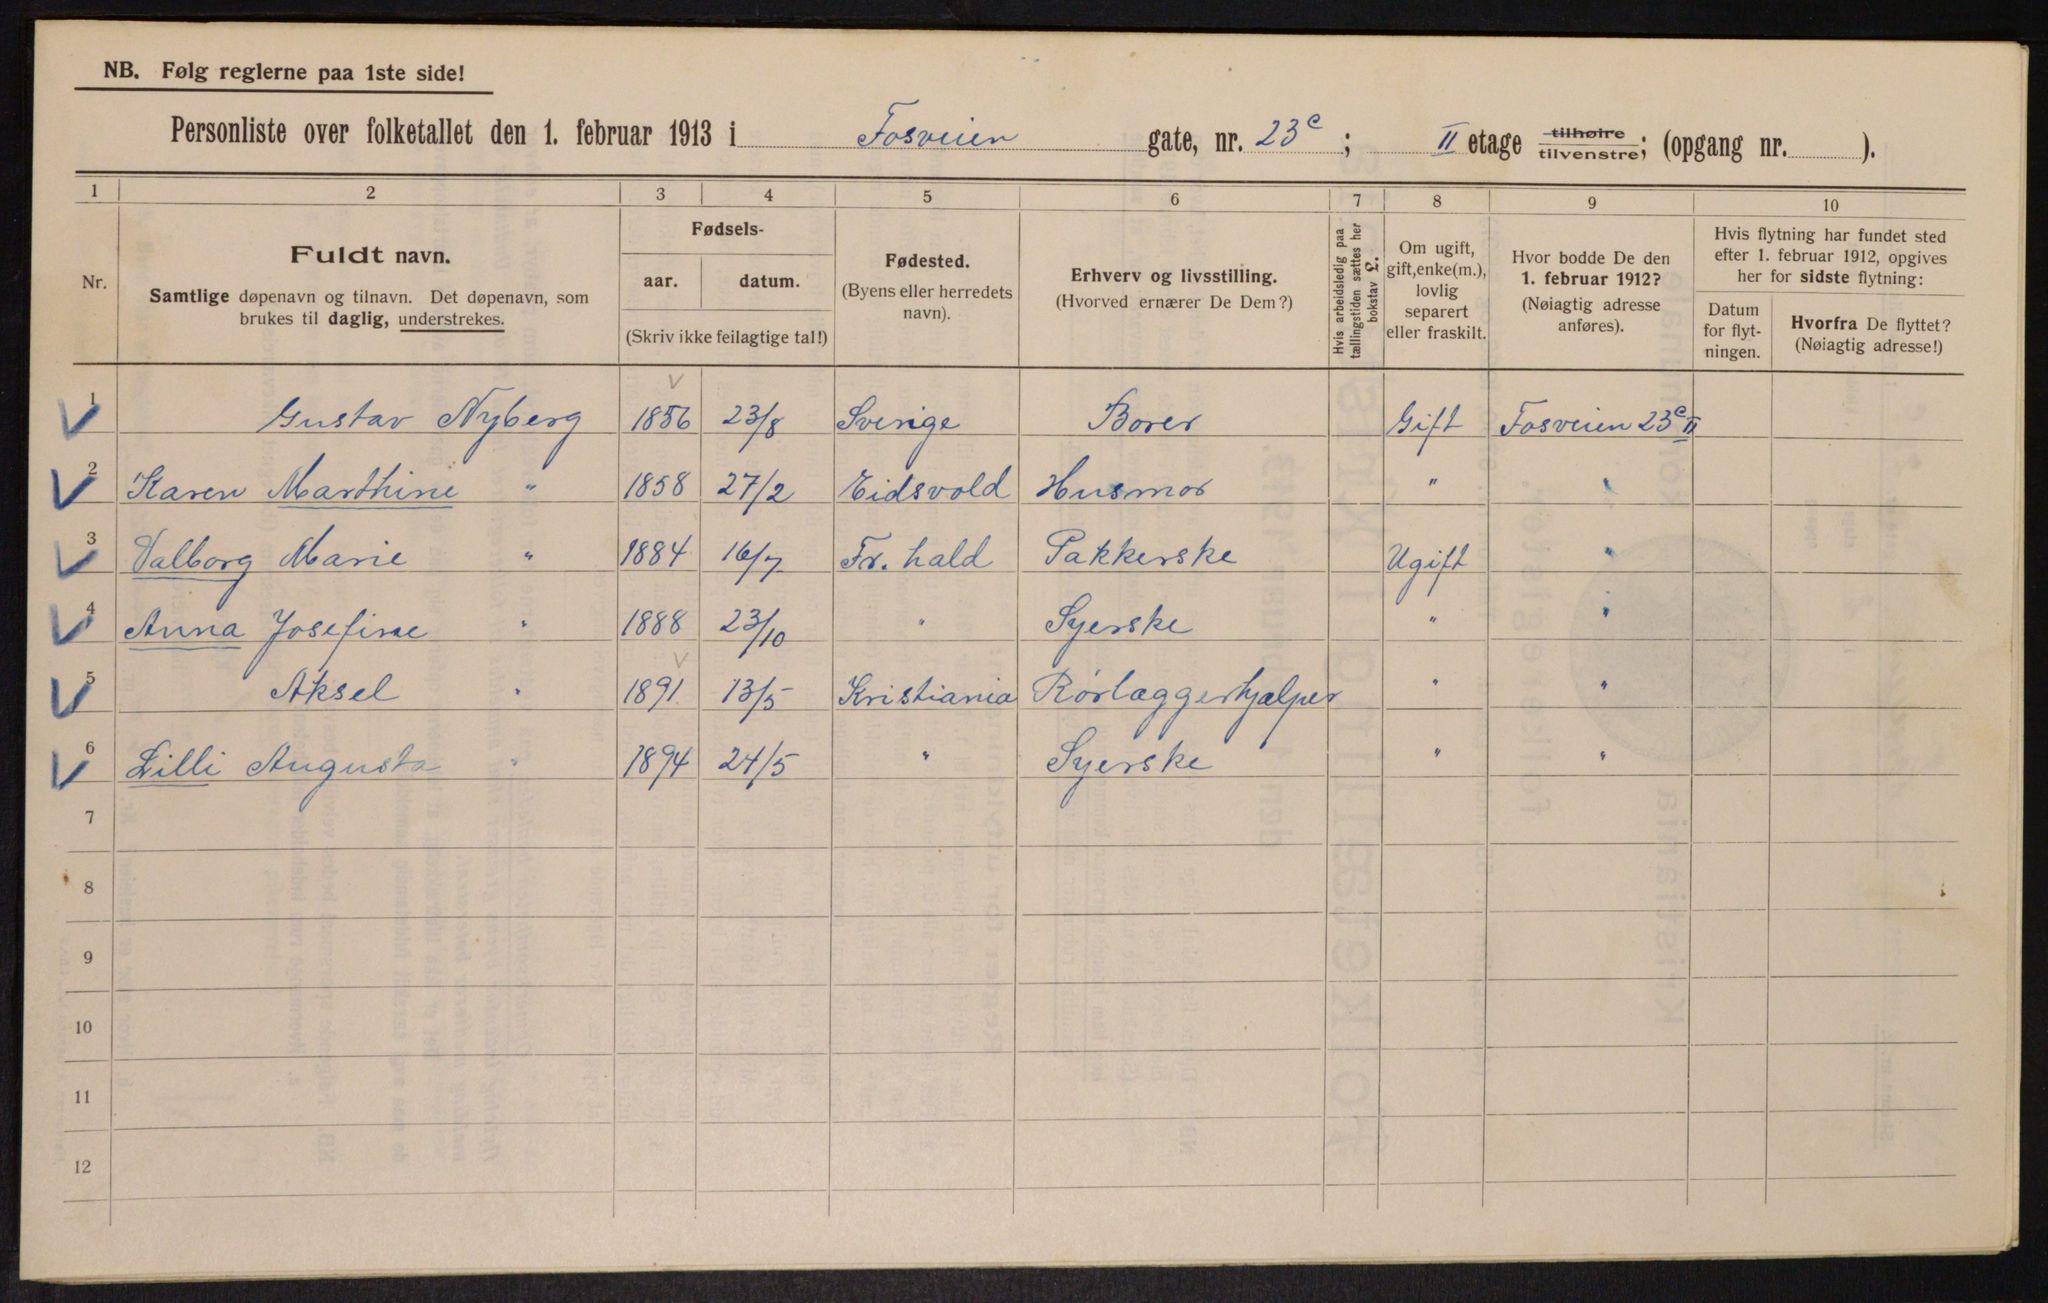 NB. Følg reglerne paa 1ste side!
Personliste over folketallet den 1. februar 1913 i Fosveien gate, nr. 23c; II etage tilhøire tilvenstre; (opgang nr. ).
1 2 3 4 5 6 7 8 9 10
Nr.
Fuldt navn.
Samtlige døpenavn og tilnavn. Det døpenavn, som
brukes til daglig, understrekes.
Fødsels-
aar. datum.
(Skriv ikke feilagtige tal!)
Fødested.
(Byens eller herredets
navn).
Erhverv og livsstilling.
(Hvorved ernærer De Dem?)
Hvis arbeidsledig paa
tællingstiden sættes her
bokstav £.
Om ugift,
gift, enke(m.),
lovlig
separert
eller fraskilt.
Hvor bodde De den
1. februar 1912?
(Nøiagtig adresse
anføres).
Hvis flytning har fundet sted
efter 1. februar 1912, opgives
her for sidste flytning:
Datum
for flyt-
ningen.
Hvorfra De flyttet?
(Nøiagtig adresse!)
1 Gustav Nyberg 1856 23/8 Sverige Borer Gift Fosveien 23c II
2 Karen Marthine " 1858 27/2 Eidsvold Husmor " "
3 Valborg Marie " 1884 16/7 Fr. hald Pakkerske Ugift "
4 Anna Josefine " 1888 23/10 " Syerske " "
5 Aksel " 1891 13/5 Kristiania Rørlæggerhjælper " "
6 Lilli Augusta " 1894 24/5 " Syerske " "
7
8
9
10
11
12